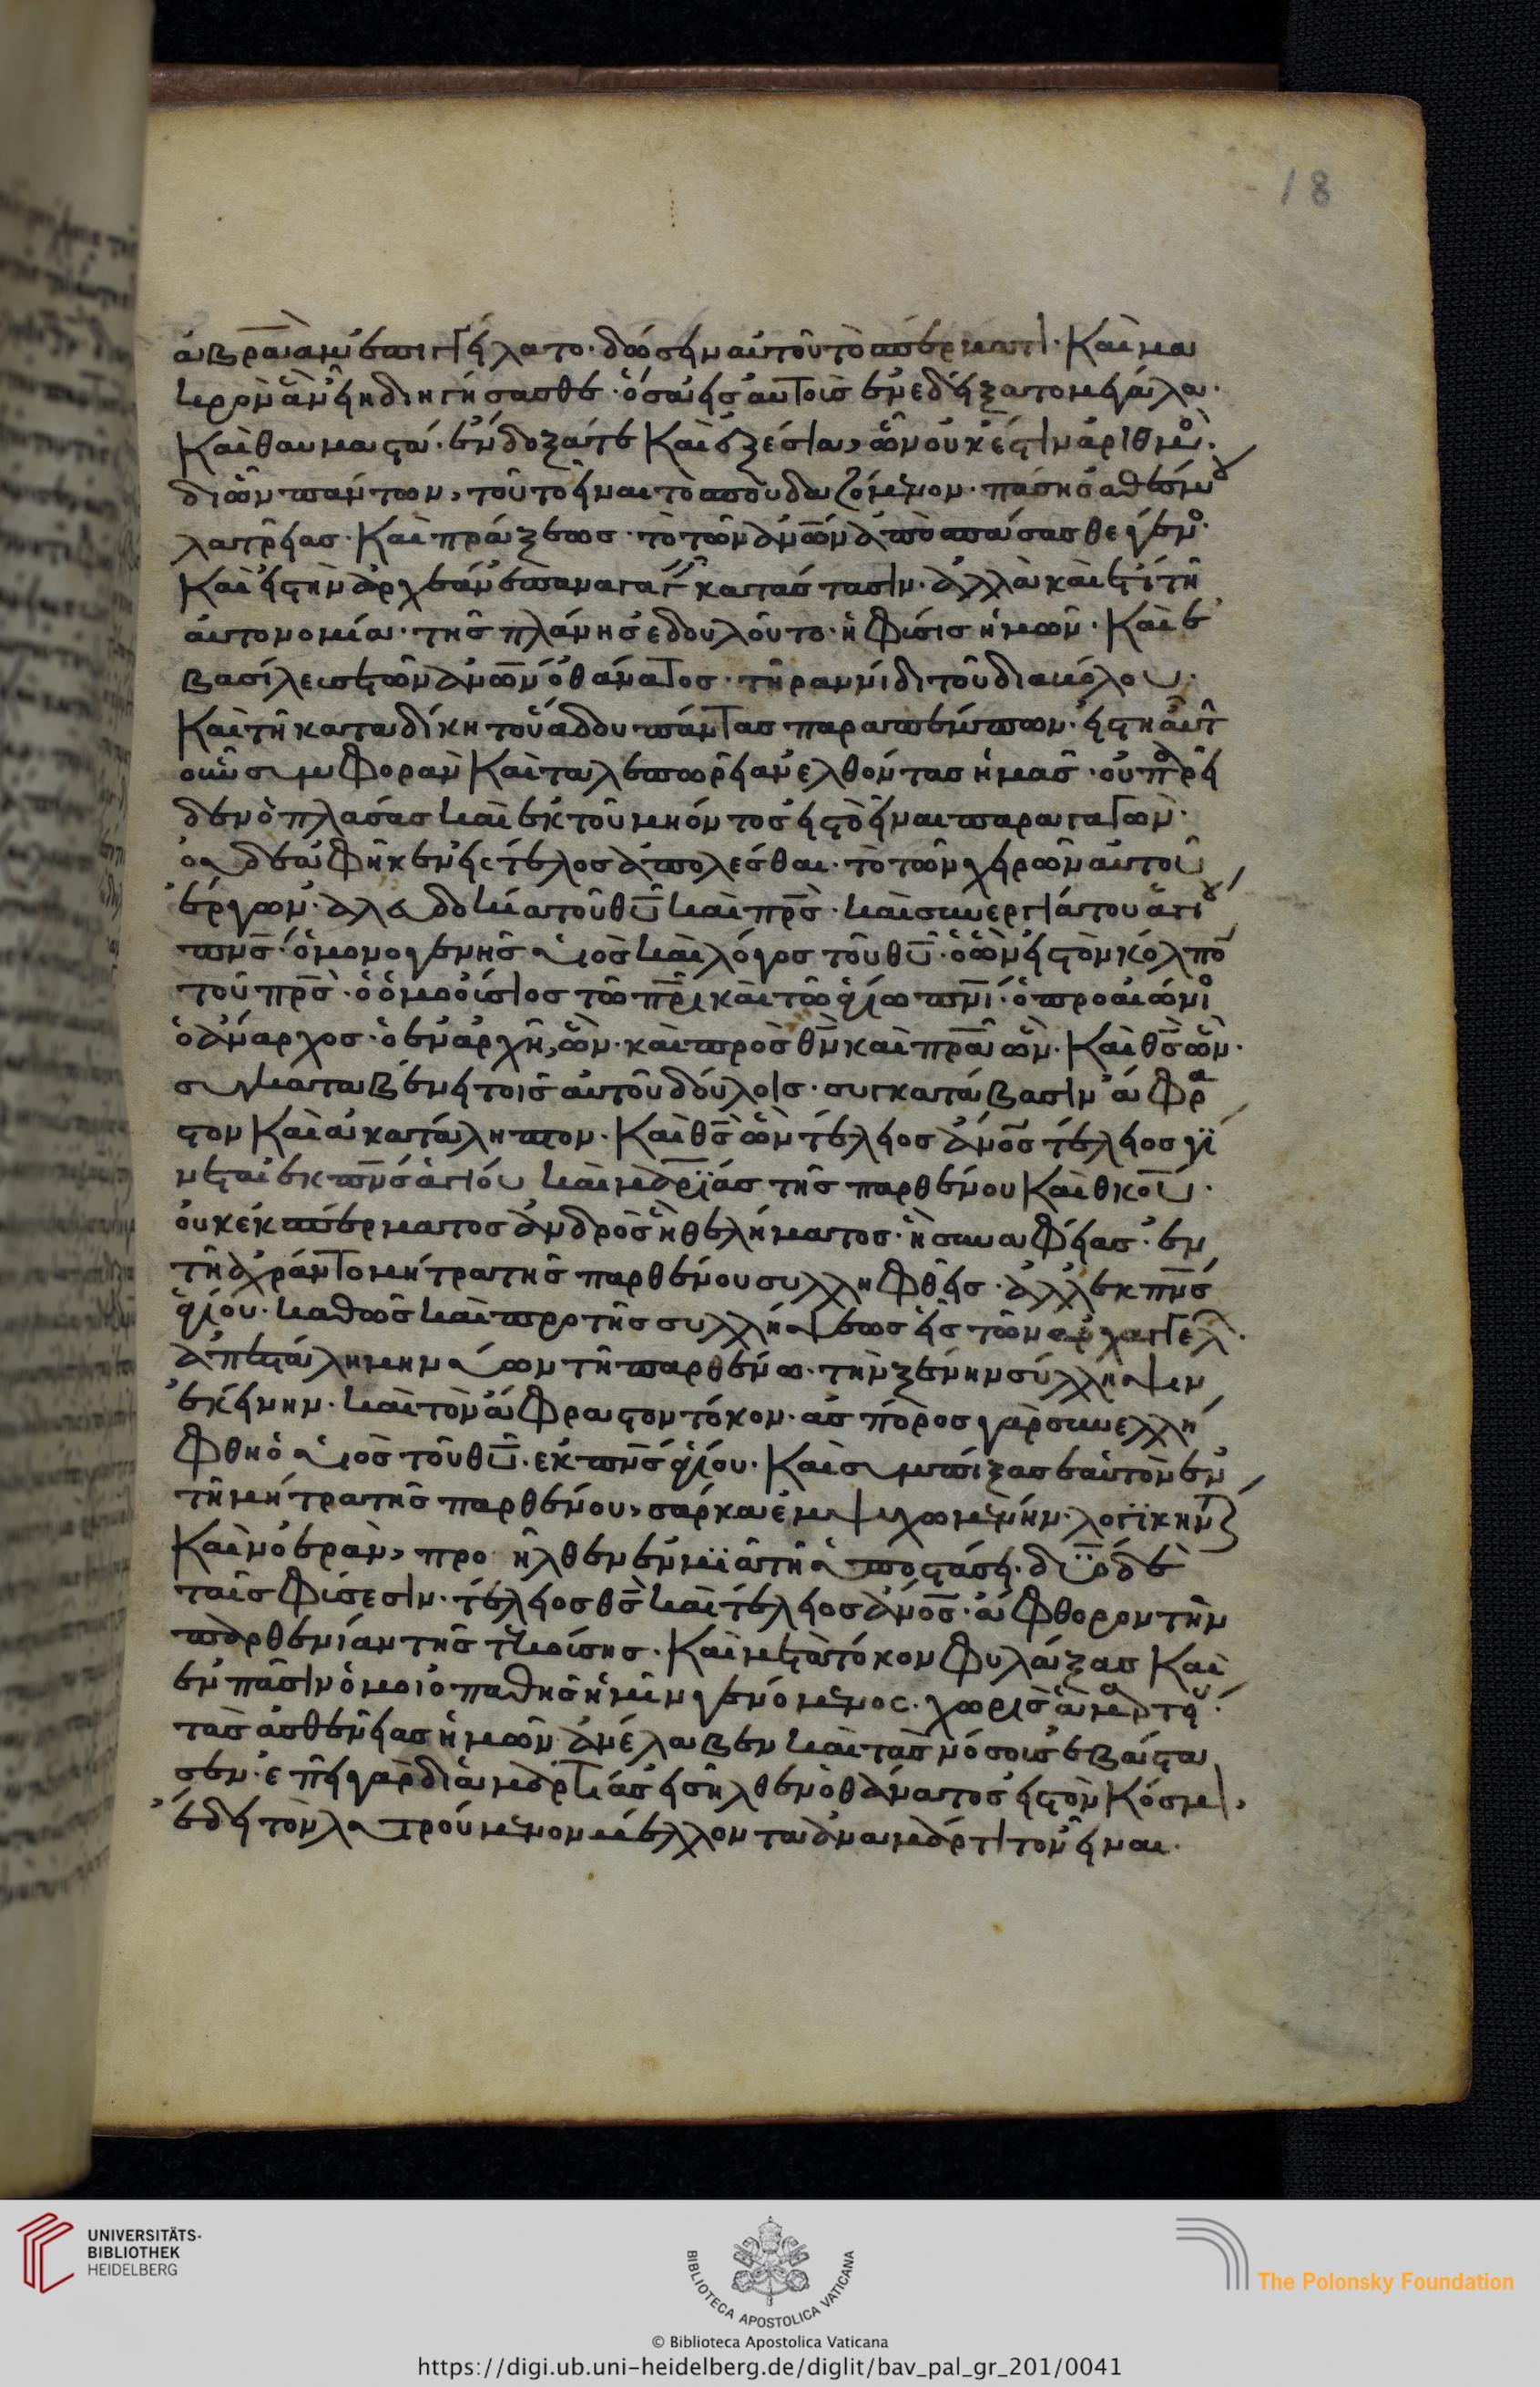 18
ἀβραὰμ ἐπιγγείλατο· δώσειν αὐτοῦ τὸ σπέρματι· Καὶ μα
κρὸν ἂν εἴη διηγήσασθε· ὅσα εἰς αὐτοῖς ἐνεδείξατο μεγάλα·
Καὶ θαυμαστά· ἔνδοξά τε Καὶ ἐξέσια, ὧν οὐκ ἔστιν ἀριθμὸ·
δι ὧν πάντων, τοῦτο εἶναι τὸ σπουδαζόμενον· πάσης ἀθέσμου
λατρείας· Καὶ πράξεως· τὸ τῶν ἀνων ἀποπαύσασθε γένο·
Καὶ εἰς τὴν ἀρχέαν ἐπαναγαγ κατάστασιν· ἀλλὰ καὶ ἐπὶ τῆ
αὐτονομία· τῆς πλάνης ἐδουλοῦτο· ἡ φύσις ἡμῶν· Καὶ ἐ
βασίλευε τῶν ἀνων ὁ θάνατος· τηραννίδι τοῦ διαβόλου·
Καὶ τῆ καταδίκη τοῦ ἅδου πάντας παραπέμπων· εἰς τηαύτ
οὖν συμφορὰν Καὶ ταλεπωρείαν ἐλθόντας ἡμᾶς· οὐ παρεῖ
δεν ὁ πλάσας καὶ ἐκ τοῦ μη όντος εἰς τὸ εἶναι παραγαγών·
οὐδὲ ἀφῆκεν εἰς τέλος ἀπολέσθαι· τὸ τῶν χειρῶν αὐτοῦ
ἔργων· ἀλλ εὐδοκία τοῦ θυ καὶ πρς· καὶ συνεργία του ἁγίου
πνς· ὁ μονογενης υἱὸς καὶ λόγος τοῦ θυ· ὁ ὢν εἰς τὸν κόλπο
τοῦ πρς· ὁ ὁμοούσιος τῶ πρι καὶ τῶ ἁγίω πνι· ὁ προαιώνιο
ὁ ἄναρχος· ὁ ἐν ἀρχῆ, ὢν· καὶ πρὸς θν καὶ πρα ὢν· Καὶ θς ὢν·
συγκαταβένει τοις αὐτοῦ δούλοις· συγκατάβασιν ἄφρα
στον Καὶ ἀκατάληπτον· Καὶ θς ὢν τέλειος ἄνος τέλειος γί
νεται ἐκ πνς ἁγίου καὶ μαρίας τῆς παρθένου Καὶ θκου·
οὐκ ἐκ σπέρματος ἀνδρὸς ἢ θελήματος· ἢ συναφείας· ἐν
τῆ ἀχράντο μήτρα της παρθένου συλληφθείς· ἀλλ ἐκ πνς
ἁγίου· καθὼς καὶ προ τῆς συλλήψεως εἷς τῶν ἀρχαγγέλ·
ἀπεστάλη μηνύων τῆ παρθένω· τὴν ξένην σύλληψιν
ἐκείνην· καὶ τὸν ἄφραστον τόκον· ἀσπόρος γὰρ συνελλή
φθη ὁ υἱὸς τοῦ θυ· ἐκ πνς ἁγίου· Καὶ συμπίξας ἑαυτὸν ἐν
τῆ μήτρα της παρθένου, σάρκα ἐμψυχωμένην· λογϊκήν
Καὶ νοερὰν, προ ηλθεν ἐν μϊᾶ τῆ ὑποστάσει· δύο δὲ
ταῖς φύσεσιν· τέλειος θς καὶ τέλειος ἄνος· ἄφθορον τὴν
παρθενίαν τῆς τεκούσης· Καὶ μετὰ τόκον φυλάξας Καὶ
ἐν πᾶσιν ὁμοιοπαθης ἡμῖν γενόμενος· χωρὶς ἁμαρτη·
τὰς ἀσθενείας ἡμῶν ἀνέλαβεν καὶ τὰς νόσους ἐβάστα
σεν· ἐπεὶ γὰρ δι ἁμαρτίας εἰσῆλθεν ὁ θάνατος εἰς τὸν Κόσμο,
ἔδει τὸν λυτρούμενον μέλλοντα ἀναμάρτιτον εἶναι·
UNIVERSITÄTS-
BIBLIOTHEK
HEIDELBERG
BIBLIOTECA APOSTOLICA VATICANA
The Polonsky Foundation
© Biblioteca Apostolica Vaticana
https://digi.ub.uni-heidelberg.de/diglit/bav_pal_gr_201/0041